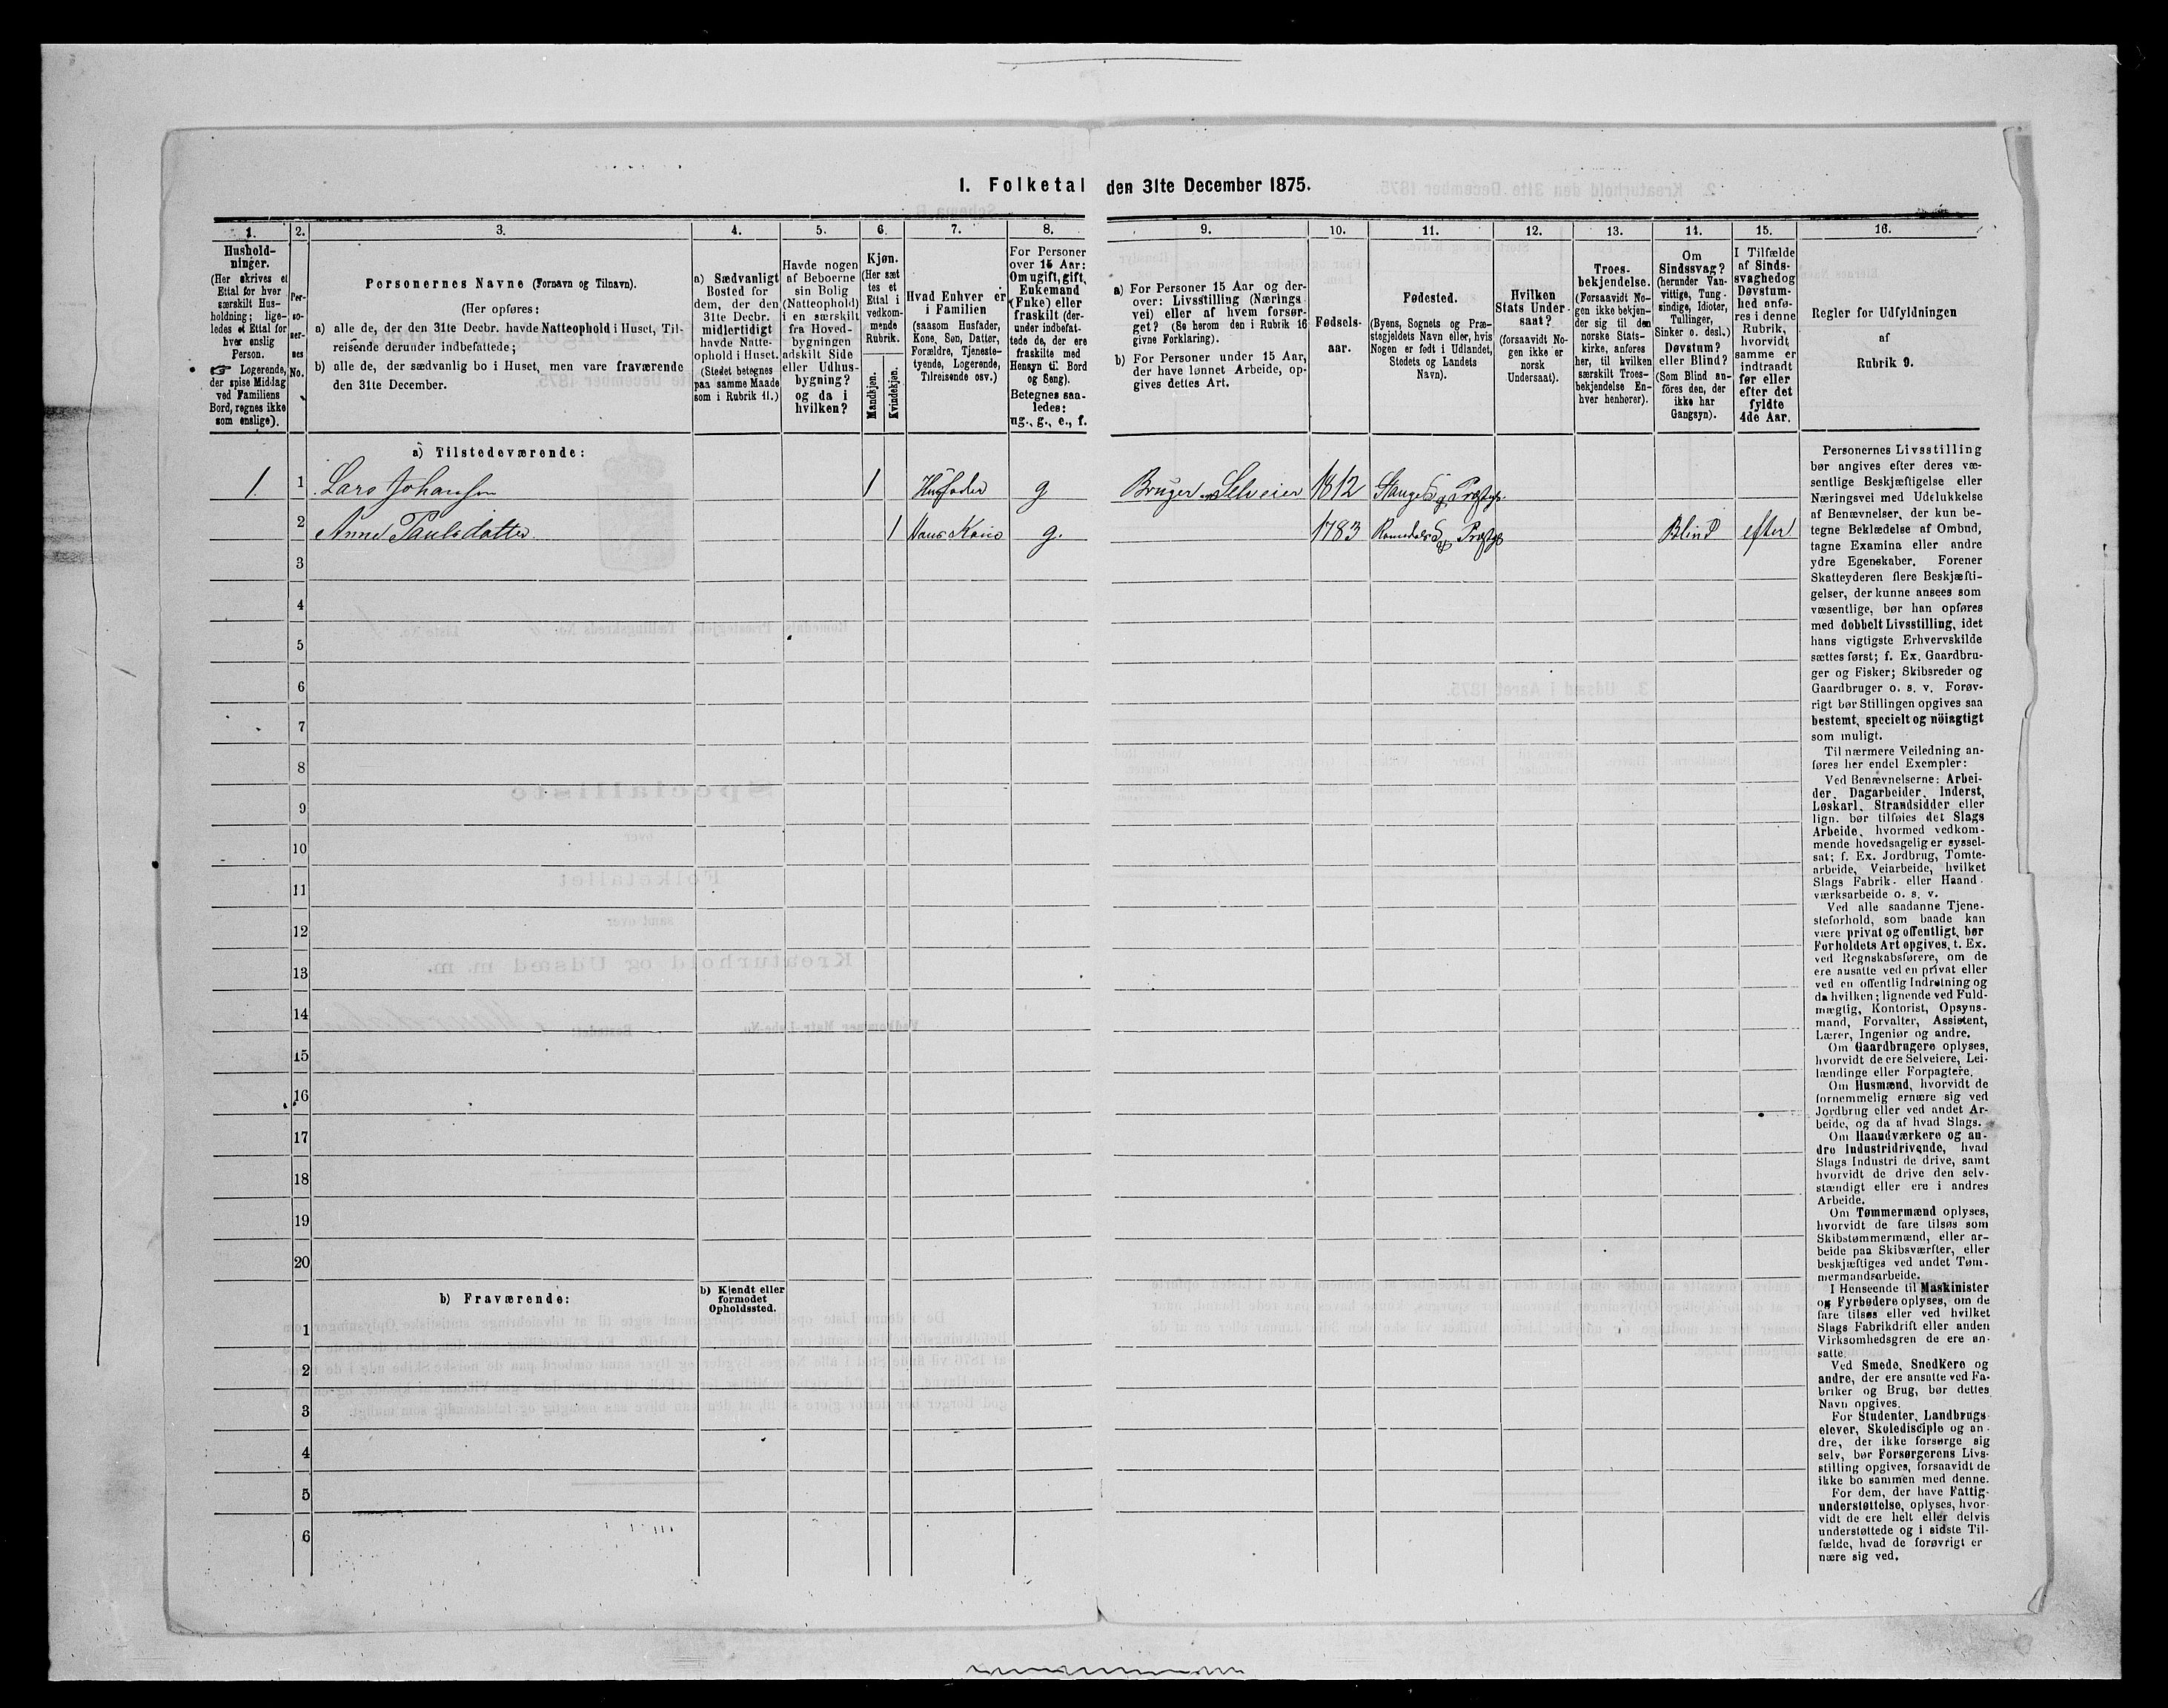 I. Folketal den 31te December 1875.
1.
Hushold-
ninger.
(Her skrives et
Ettal for hver
særskilt Hus-
holdning; lige-
ledes et Ettal for
hver enslig
Person.
☞ Logerende,
der spise Middag
ved Familiens
Bord, regnes ikke
som enslige).
2.
Per-
so-
ner-
nes
No.
3.
Personernes Navne (Fornavn og Tilnavn).
(Her opføres:
a) alle de, der den 31te Decbr. havde Natteophold i Huset, Til-
reisende derunder indbefattede;
b) alle de, der sædvanlig bo i Huset, men vare fraværende
den 31te December.
4.
a) Sædvanligt
Bosted for
dem, der den
31te Decbr.
midlertidigt
havde Natte-
ophold i Huset.
(Stedet betegnes
paa samme Maade
som i Rubrik 11.)
5.
Havde nogen
af Beboerne
sin Bolig
(Natteophold)
i en særskilt
fra Hoved-
bygningen
adskilt Side
eller Udhus-
bygning?
og da i
hvilken?
6.
Kjøn.
(Her sæt
tes et
Ettal i
vedkom-
mende
Rubrik.
Mandkjøn.
Kvindekjøn.
7.
Hvad Enhver er
i Familien
(saasom Husfader,
Kone, Søn, Datter,
Forældre, Tjeneste-
tyende, Logerende,
Tilreisende osv.)
8.
For Personer
over 15 Aar:
Om ugift, gift,
Enkemand
(Enke) eller
fraskilt (der-
under indbefat-
tede de, der ere
fraskilte med
Hensyn til Bord
og Seng).
Betegnes saa-
ledes:
ug., g., e., f.
9.
a) For Personer 15 Aar og der-
over: Livsstilling (Nærings
vei) eller af hvem forsør-
get? (Se herom den i Rubrik 16
givne Forklaring).
b) For Personer under 15 Aar,
der have lønnet Arbeide, op-
gives dettes Art.
10.
Fødsels-
aar.
11.
Fødested.
(Byens, Sognets og Præ-
stegjeldets Navn eller, hvis
Nogen er født i Udlandet,
Stedets og Landets
Navn).
12.
Hvilken
Stats Under-
saat?
(forsaavidt No-
gen ikke er
norsk
Undersaat).
13.
Troes-
bekjendelse.
(Forsaavidt No-
gen ikke bekjen-
der sig til den
norske Stats-
kirke, anføres
her, til hvilken
særskilt Troes-
bekjendelse En-
hver henhører).
14.
Om
Sindssvag?
(herunder Van-
vittige, Tung-
sindige, Idioter,
Tullinger,
Sinker o. desl.)
Døvstum?
eller Blind?
(Som Blind an-
föres den, der
ikke har
Gangsyn).
15.
I Tilfælde
af Sinds-
svaghed og
Døvstum-
hed anfø-
res i denne
Rubrik,
hvorvidt
samme er
indtraadt
før eller
efter det
fyldte
4de Aar.
16.
Regler for Udfyldningen
af
Rubrik 9.
a) Tilstedeværende:
1. 1 Lars Johansen 1 Husfader g Bruger og Selveier 1812 Stange S og Præstgj.
2 Anne Paulsdatter 1 Hans Kone g. 1783 Romedals S og Præstgj Blind efter
3
4
5
6
7
8
9
10
11
12
13
14
15
16
17
18
19
20
b) Fraværende:
b) Kjendt eller
formodet
Opholdssted.
1
2
3
4
5
6
Personernes Livsstilling
bør angives efter deres væ-
sentlige Beskjæftigelse eller
Næringsvei med Udelukkelse
af Benævnelser, der kun be-
tegne Beklædelse af Ombud,
tagne Examina eller andre
ydre Egenskaber. Forener
Skatteyderen flere Beskjæfti-
gelser, der kunne ansees som
væsentlige, bør han opføres
med dobbelt Livsstilling, idet
hans vigtigste Erhvervskilde
sættes først; f. Ex. Gaardbru-
ger og Fisker; Skibsreder og
Gaardbruger o. s. v. Forøv-
rigt bør Stillingen opgives saa
bestemt, specielt og nöiagtigt
som muligt.
Til nærmere Veiledning an-
føres her endel Exempler:
Ved Benævnelserne: Arbei-
der, Dagarbeider, Inderst,
Løskarl, Strandsidder eller
lign. bør tilføies det Slags
Arbeide, hvormed vedkom-
mende hovedsagelig er syssel-
sat; f. Ex. Jordbrug, Tomte-
arbeide, Veiarbeide, hvilket
Slags Fabrik- eller Haand-
værksarbeide o. s. v.
Ved alle saadanne Tjene-
steforhold, som baade kan
være privat og offentligt, bør
Forholdets Art opgives, t. Ex.
ved Regnskabsførere, om de
ere ansatte ved en privat eller
ved en offentlig Indretning og
da hvilken; lignende ved Fuld-
mægtig, Kontorist, Opsyns-
mand, Forvalter, Assistent,
Lærer, Ingeniør og andre.
Om Gaardbrugere oplyses,
hvorvidt de ere Selveiere, Lei-
lændinge eller Forpagtere.
Om Husmænd, hvorvidt de
fornemmelig ernære sig ved
Jordbrug eller ved andet Ar-
beide, og da af hvad Slags.
Om Haandværkere og an-
dre Industridrivende, hvad
Slags Industri de drive, samt
hvorvidt de drive den selv-
stændigt eller ere i andres
Arbeide.
Om Tømmermænd oplyses,
hvorvidt de fare tilsøs som
Skibstømmermænd, eller ar-
beide paa Skibsværfter, eller
beskjæftiges ved andet Tøm-
mermandsarbeide.
I Henseende til Maskinister
og Fyrbødere oplyses, om de
fare tilsøs eller ved hvilket
Slags Fabrikdrift eller anden
Virksomhedsgren de ere an-
satte.
Ved Smede, Snedkere og
andre, der ere ansatte ved Fa-
briker og Brug, bør dettes
Navn opgives.
For Studenter, Landbrugs-
elever, Skoledisciple og an-
dre, der ikke forsørge sig
selv, bør Forsørgerens Livs-
stilling opgives, forsaavidt de
ikke bo sammen med denne.
For dem, der have Fattig-
understøttelse, oplyses, hvor-
vidt de ere helt eller delvis
understøttede og i sidste Til-
fælde, hvad de forøvrigt er
nære sig ved.